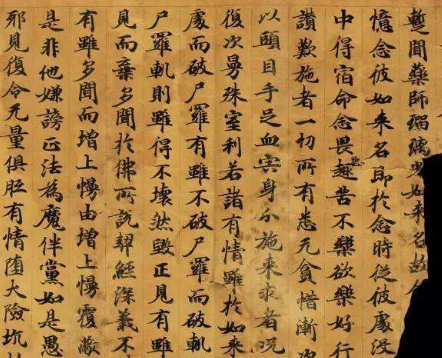 暫聞藥師瑠璃光如来名故
憶念彼如来名即於念時從彼處没
中得宿命念畏趣苦不樂欲樂好行
讚歎施者一切所有悉无貪惜漸
以頭目手足血宍身分施来求者况
復次曼殊室利若諸有情雖於如来
處而破尸羅有雖不破尸羅而破軌
尸羅軌則雖得不壞然毀正見有雖
見而棄多聞於佛所説契經深義不
有雖多聞而增上慢由增上慢覆蔽
是非他嫌謗正法為魔伴黨如是愚
邪見復令无量俱胝有情墮大險坑